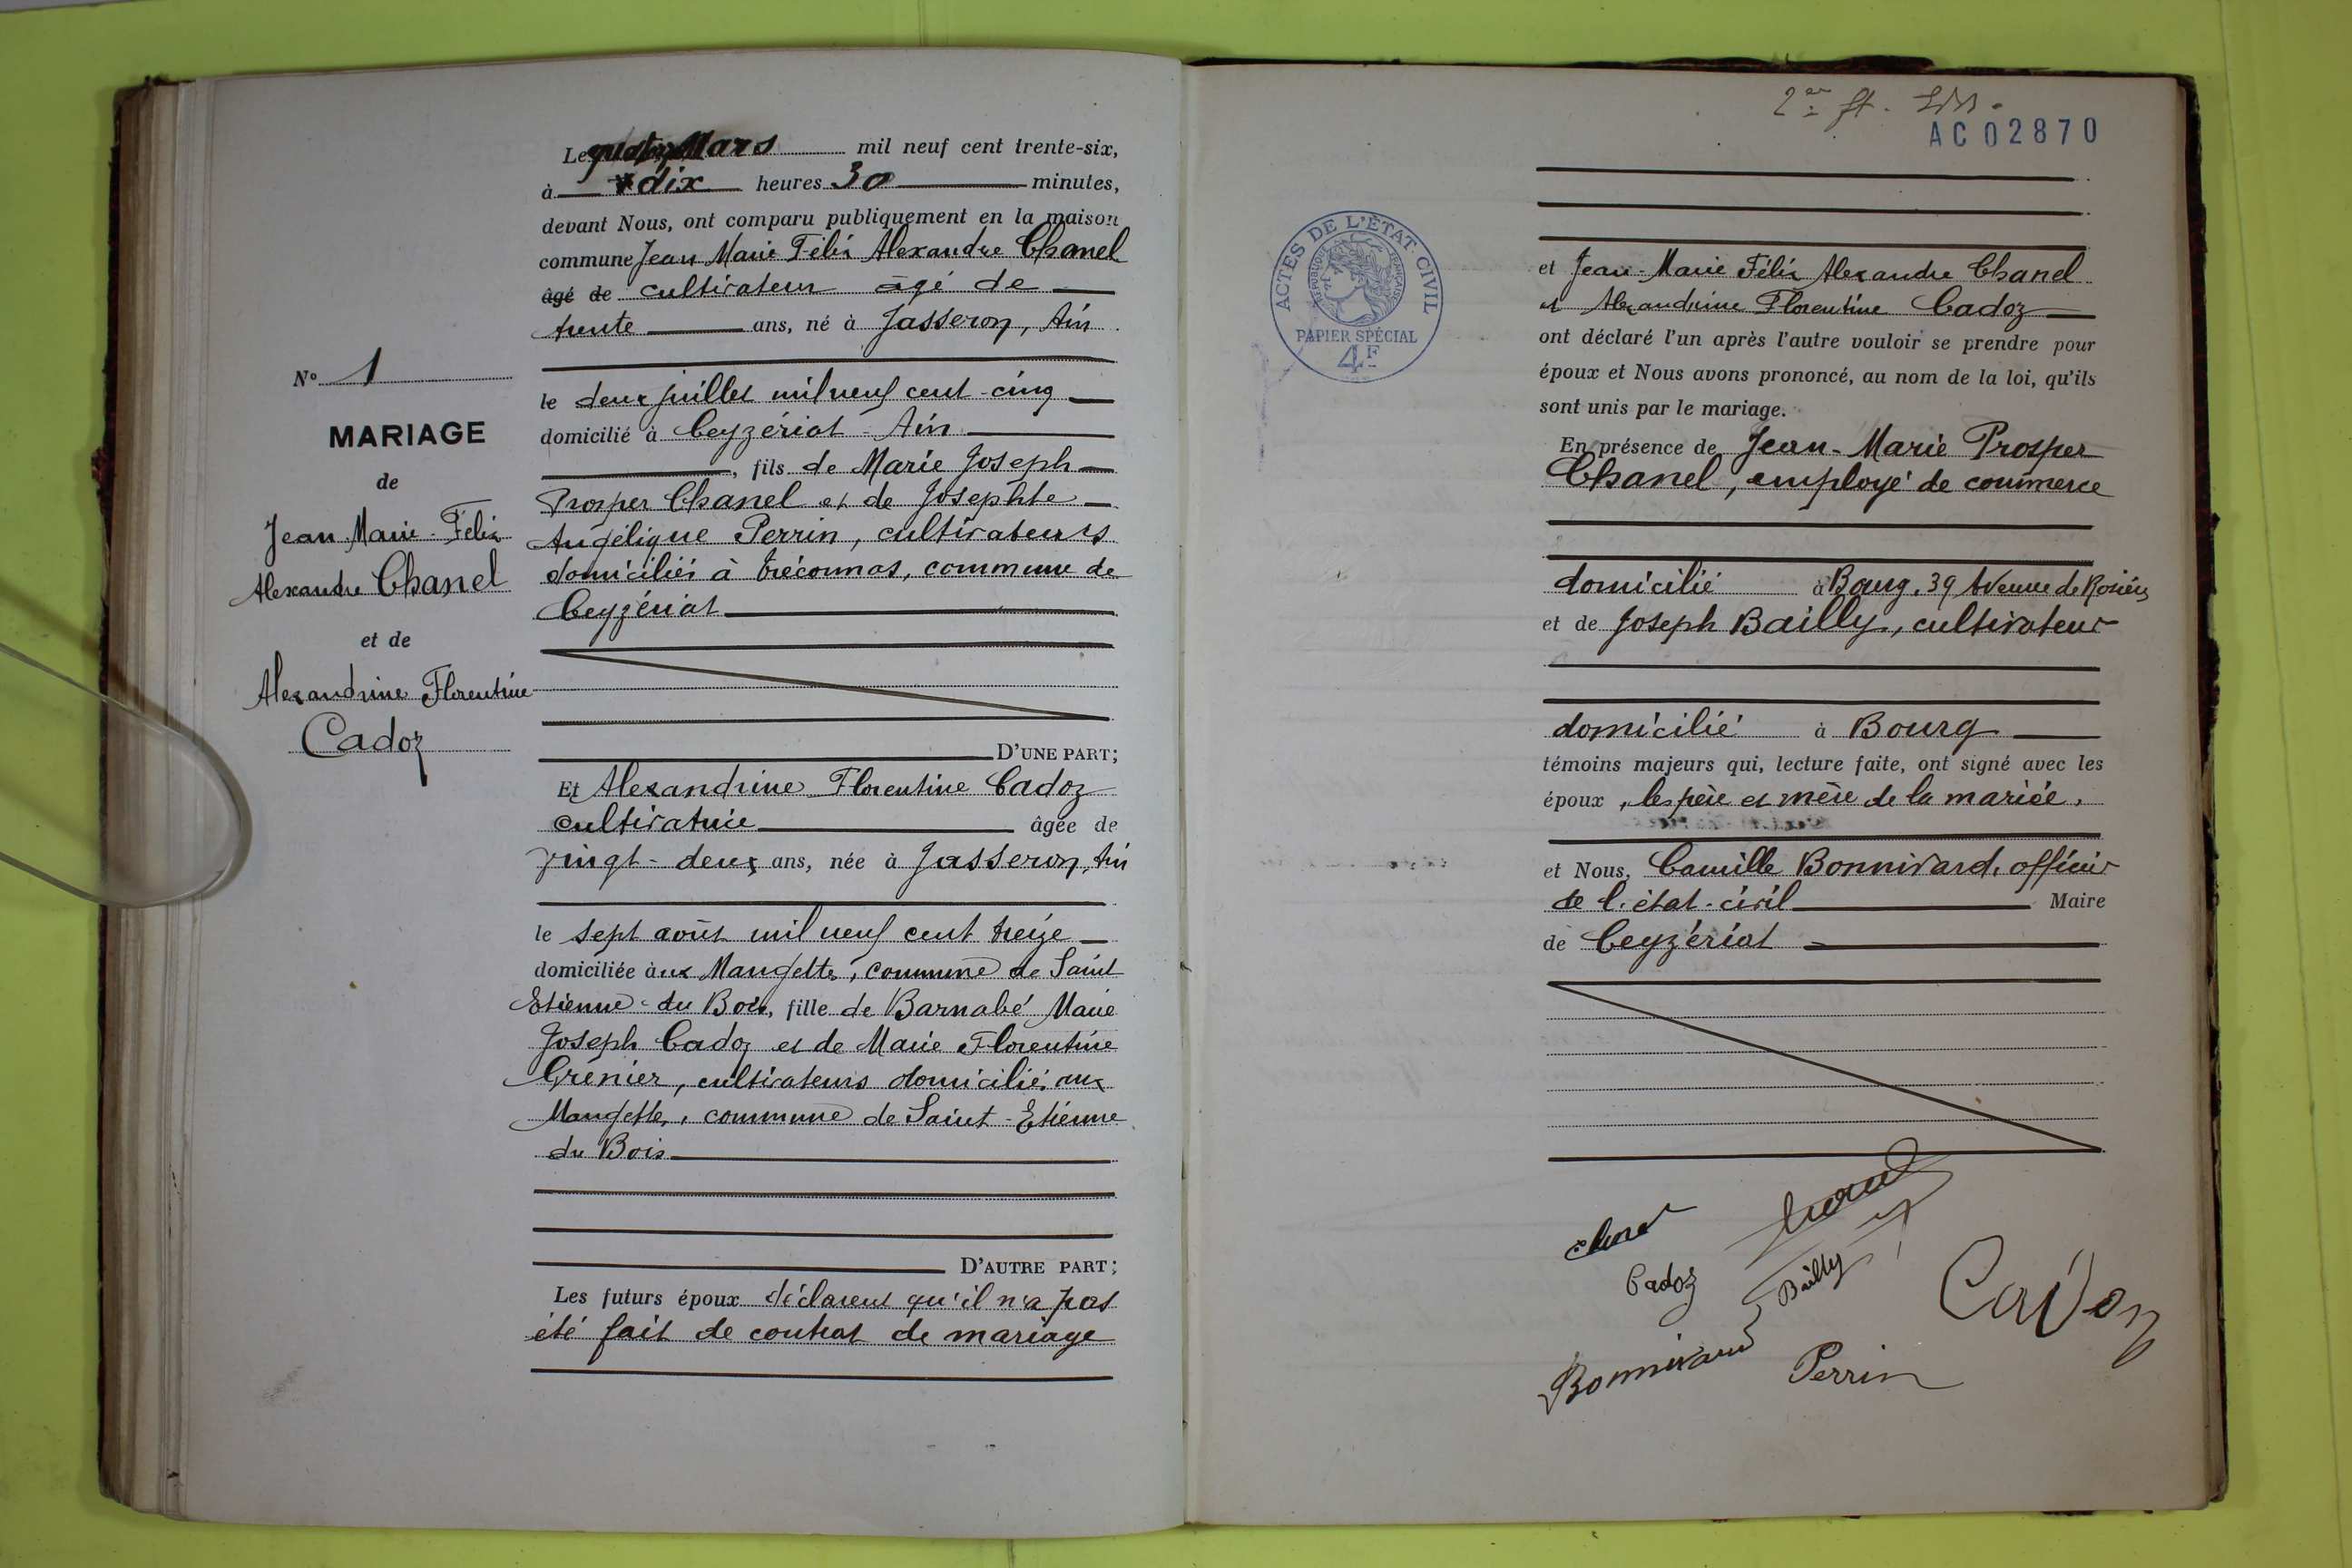 Le quatorze Mars mil neuf cent trente-six,
à dix heures 30 minutes,
devant Nous, ont comparu publiquement en la maison
commune Jean Marie Félix Alexandre Chanel
âgé de cultivateur âgé de
trente ans, né à Jasseron, Ain
N° 1
le deux juillet mil neuf cent cinq
MARIAGE
domicilié à Ceyzériat - Ain
, fils de Marie Joseph
de
Prosper Chanel et de Josephte
Jean Marie Félix
Angélique Perrin, cultivateurs
Alexandre Chanel
domiciliés à Trécounas, commune de
Ceyzériat
et de
Alexandrine Florentine
Cadoz
D'UNE PART;
Et Alexandrine Florentine Cadoz
cultivatrice âgée de
vingt-deux ans, née à Jasseron, Ain
le sept août mil neuf cent treize
domiciliée aux Mangettes, commune de Saint
Etienne-du Bois, fille de Barnabé Marie
Joseph Cadoz et de Marie Florentine
Grénier, cultivateurs domiciliés aux
Mangettes, commune de Saint-Etienne
du Bois
D'AUTRE PART;
Les futurs époux déclarent qu'il n'a pas
été fait de contrat de mariage
AC 02870
ACTES DE L'ÉTAT-CIVIL
RÉPUBLIQUE FRANÇAISE
PAPIER SPÉCIAL
4F
et Jean-Marie Félix Alexandre Chanel
et Alexandrine Florentine Cadoz
ont déclaré l'un après l'autre vouloir se prendre pour
époux et Nous avons prononcé, au nom de la loi, qu'ils
sont unis par le mariage.
En présence de Jean-Marie Prosper
Chanel, employé de commerce
domicilié à Bourg, 39 Avenue de Rosières
et de Joseph Bailly, cultivateur
domicilié à Bourg
témoins majeurs qui, lecture faite, ont signé avec les
époux, les père et mère de la mariée,
et Nous, Camille Bonnivard, officier
de l'état-civil Maire
de Ceyzériat
Chanel
Cadoz
Bailly
Cadoz
Bonnivard
Perrin